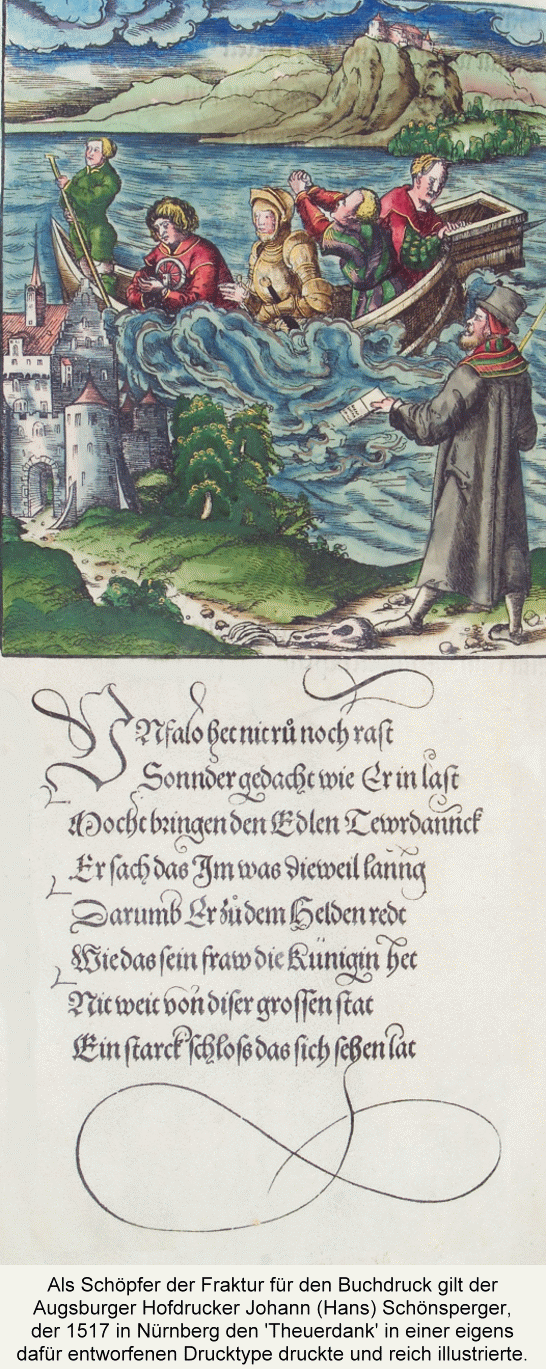 VNfalo het nit rů noch rast
Sonnder gedacht wie Er in last
Mocht bringen den Edlen Tewrdannck
Er sach das Im was dieweil lanng
Darumb Er zů dem Helden redt
Wie das sein fraw die Künigin het
Nit weit von diser grossen stat
Ein starck schloss das sich sehen lat
Als Schöpfer der Fraktur für den Buchdruck gilt der
Augsburger Hofdrucker Johann (Hans) Schönsperger,
der 1517 in Nürnberg den 'Theuerdank' in einer eigens
dafür entworfenen Drucktype druckte und reich illustrierte.